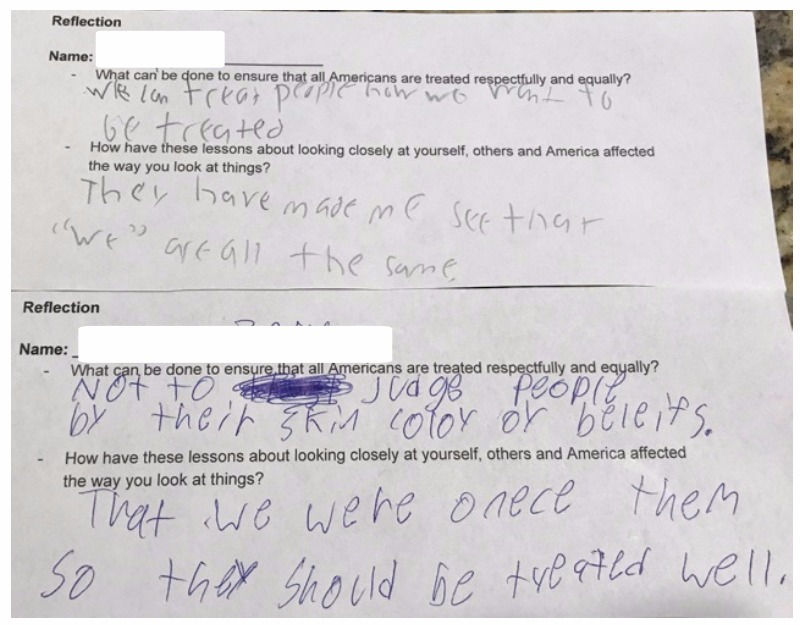 Reflection
Name:
- What can be done to ensure that all Americans are treated respectfully and equally?
We can treat people how we want to
be treated
- How have these lessons about looking closely at yourself, others and America affected
the way you look at things?
They have made me see that
"we" are all the same
Reflection
Name:
- What can be done to ensure that all Americans are treated respectfully and equally?
Not to judge people
by their skin color or beleifs.
- How have these lessons about looking closely at yourself, others and America affected
the way you look at things?
That we were onece them
so they should be treated well.